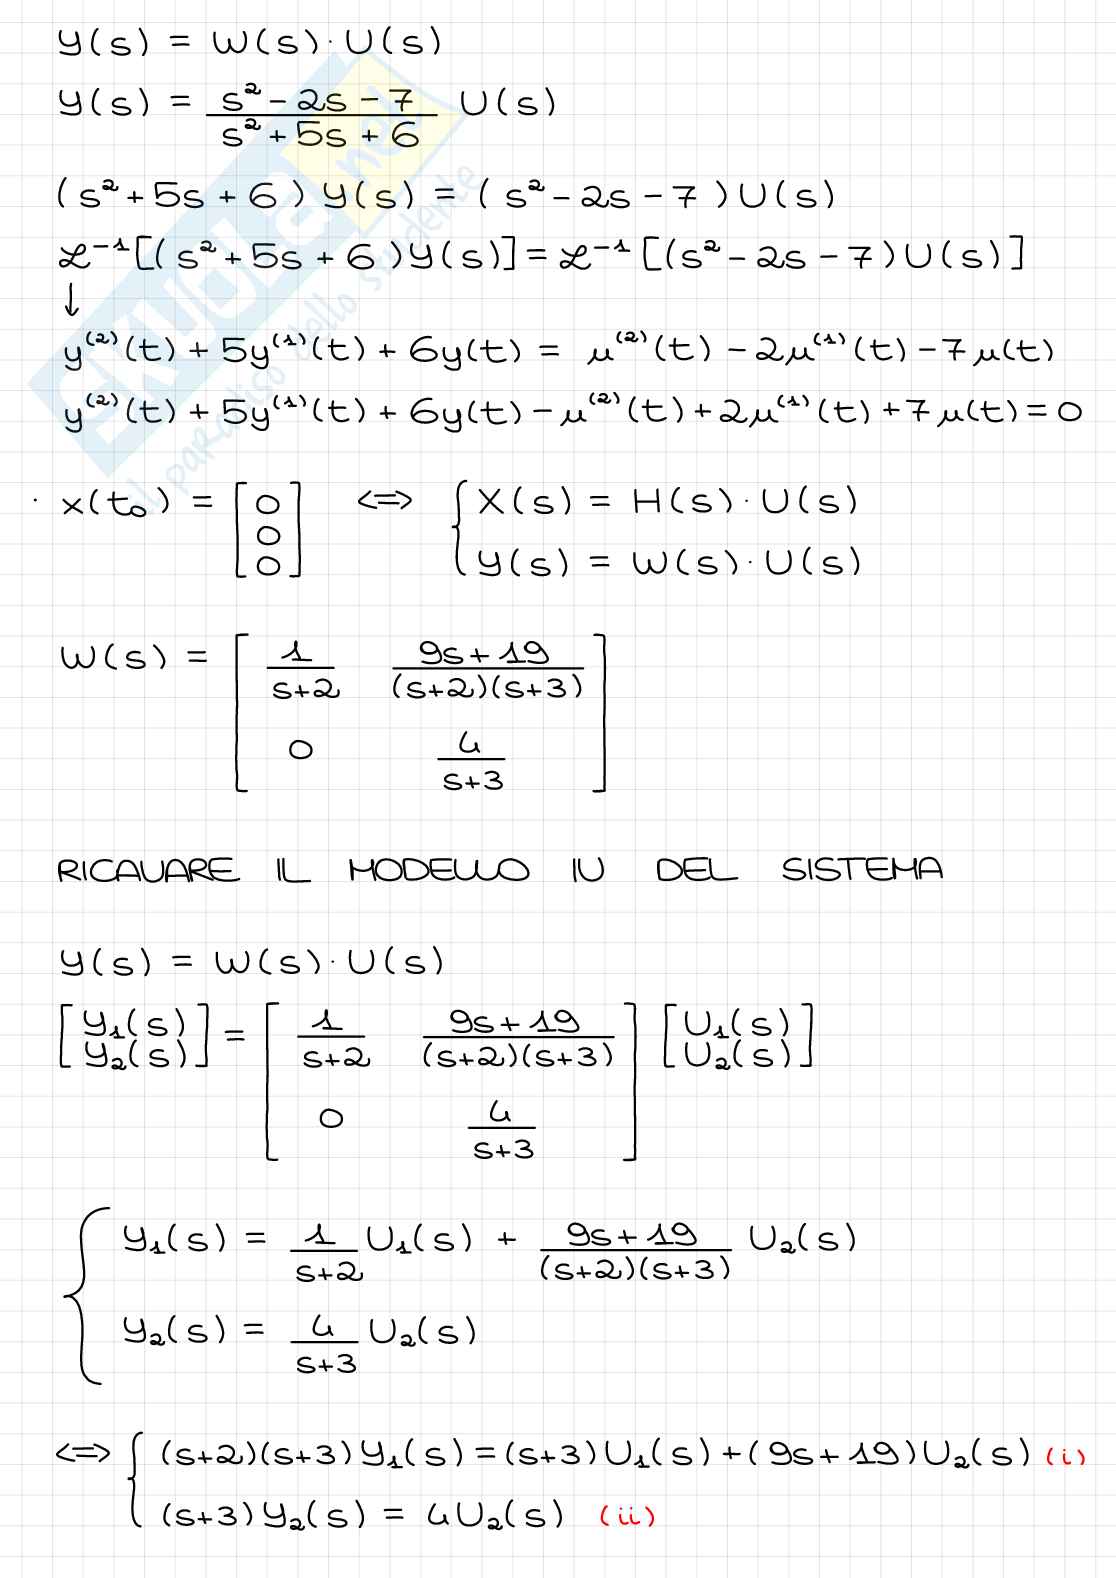 y(s) = W(s)·U(s)
y(s) = (s² - 2s - 7)/(s² + 5s + 6) U(s)
(s² + 5s + 6) y(s) = (s² - 2s - 7) U(s)
ℒ⁻¹[(s² + 5s + 6) y(s)] = ℒ⁻¹[(s² - 2s - 7) U(s)]
↓
y⁽²⁾(t) + 5y⁽¹⁾(t) + 6y(t) = μ⁽²⁾(t) - 2μ⁽¹⁾(t) - 7μ(t)
y⁽²⁾(t) + 5y⁽¹⁾(t) + 6y(t) - μ⁽²⁾(t) + 2μ⁽¹⁾(t) + 7μ(t) = 0
· x(t₀) = [0 0 0] <=> { X(s) = H(s)·U(s)
y(s) = W(s)·U(s)
W(s) = [ 1/(s+2) (9s+19)/((s+2)(s+3))
0 4/(s+3) ]
RICAVARE IL MODELLO IU DEL SISTEMA
y(s) = W(s)·U(s)
[y₁(s) y₂(s)] = [ 1/(s+2) (9s+19)/((s+2)(s+3))
0 4/(s+3) ] [U₁(s) U₂(s)]
{ y₁(s) = 1/(s+2) U₁(s) + (9s+19)/((s+2)(s+3)) U₂(s)
y₂(s) = 4/(s+3) U₂(s)
<=> { (s+2)(s+3) y₁(s) = (s+3)U₁(s) + (9s+19)U₂(s) (i)
(s+3) y₂(s) = 4U₂(s) (ii)
SKUOLA.net
il paradiso dello studente